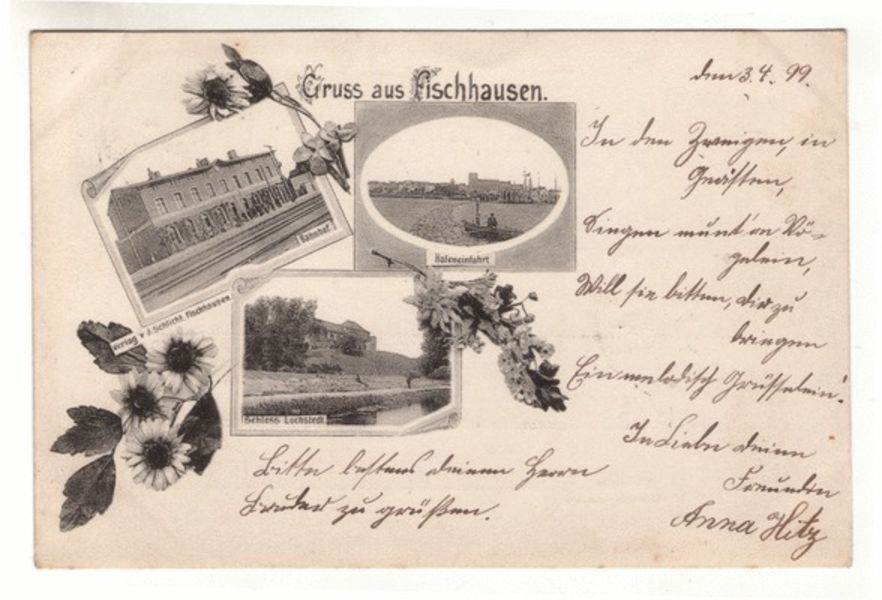 Gruss aus Fischhausen.
den 3.4.99.
Bahnhof.
Hafeneinfahrt
Verlag v. J. Schlicht, Fischhausen.
Schloss Lochstedt
In den Zweigen, in
Geästen,
Singen munt're Vö-
gelein,
Will sie bitten, dir zu
bringen
Ein melodisch Grüsselein!
In Liebe deine
Freundin
Anna Hitz
Bitte bestens deinen Herrn
Bruder zu grüßen.